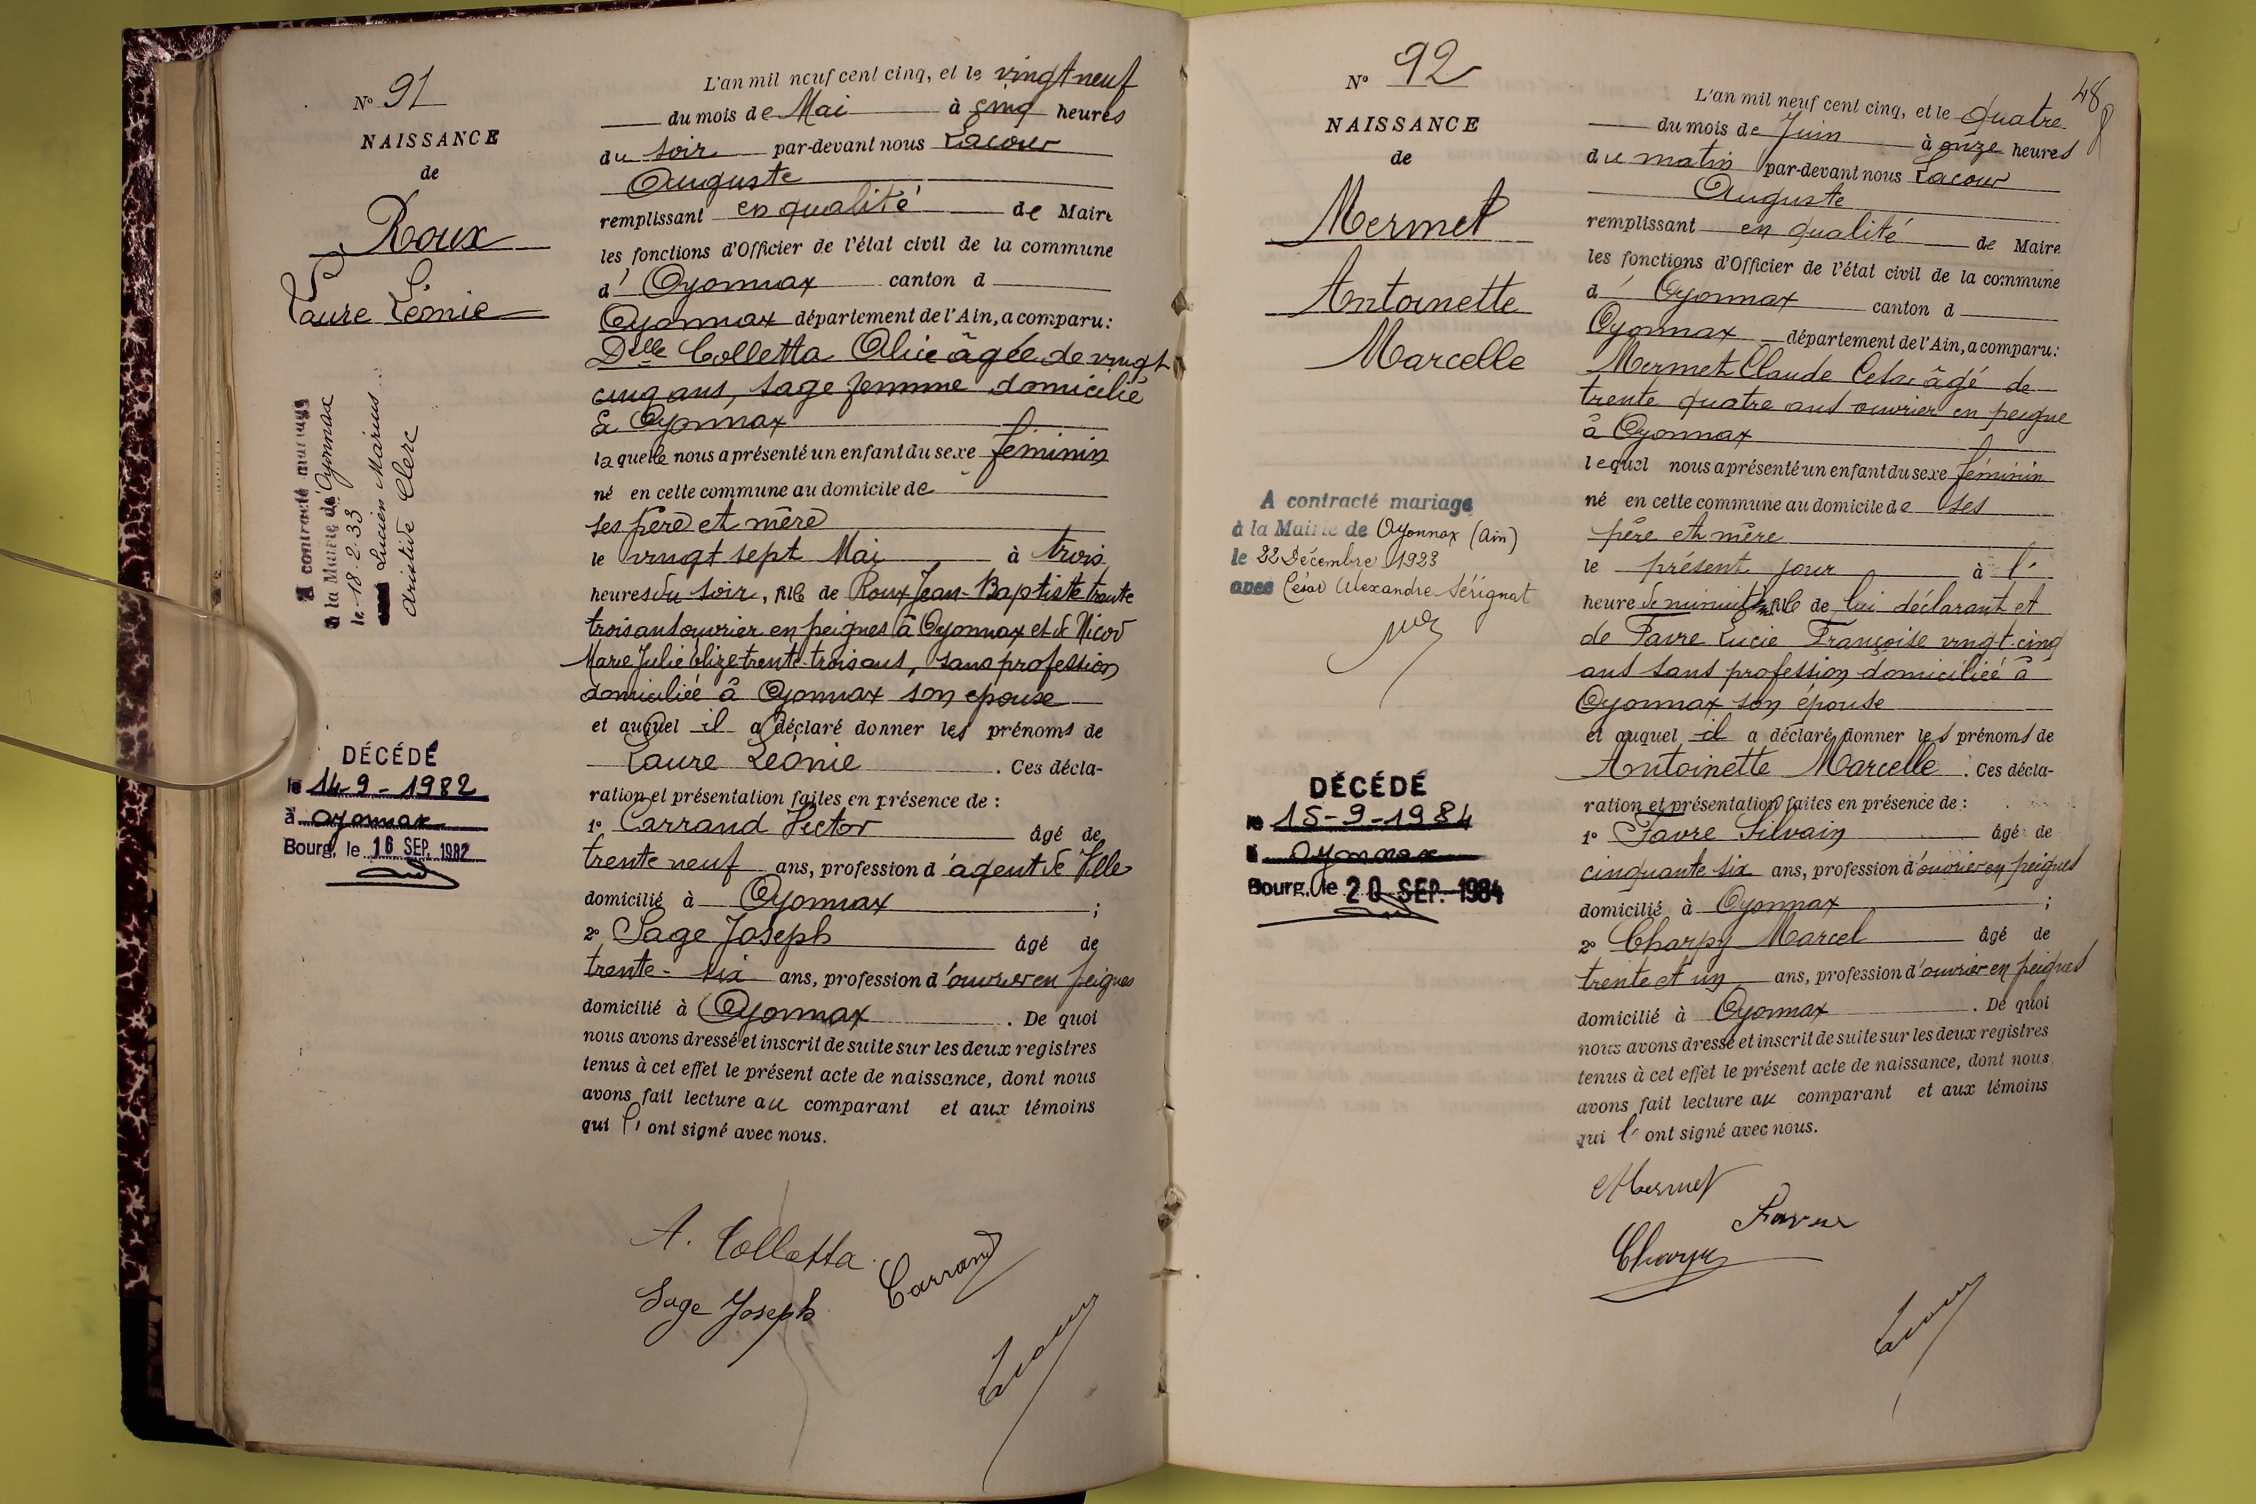 N° 91
NAISSANCE
de
Roux
Laure Léonie
A contracté mariage
à la Mairie de Oyonnax
le 18.2.33
Lucien Marius
Aristide Clerc
DÉCÉDÉ
le 14-9-1982
à Oyonnax
Bourg, le 16 SEP. 1982
L'an mil neuf cent cinq, et le vingt neuf
du mois de Mai à cinq heures
du soir par-devant nous Lacour
Auguste
remplissant en qualité de Maire
les fonctions d'Officier de l'état civil de la commune
d' Oyonnax canton d
Oyonnax département de l'Ain, a comparu:
Delle Colletta Alice âgée de vingt
cinq ans, sage femme domicilié
à Oyonnax
laquelle nous a présenté un enfant du sexe féminin
né en cette commune au domicile de
ses père et mère
le vingt sept Mai à trois
heures du soir, fille de Roux Jean-Baptiste trente
trois ans ouvrier en peignes à Oyonnax et de Nicod
Marie Julie Elize trente-trois ans, sans profession
domiciliée à Oyonnax son epouse
et auquel il a déclaré donner les prénoms de
Laure Léonie . Ces décla-
ration et présentation faites en présence de :
1° Carrand Victor âgé de
trente neuf ans, profession d'agent de Ville
domicilié à Oyonnax ;
2° Sage Joseph âgé de
trente-six ans, profession d'ouvrier en peignes
domicilié à Oyonnax . De quoi
nous avons dressé et inscrit de suite sur les deux registres
tenus à cet effet le présent acte de naissance, dont nous
avons fait lecture au comparant et aux témoins
qui l' ont signé avec nous.
A. Colletta
Carrand
Sage Joseph
N° 92
NAISSANCE
de
Mermet
Antoinette
Marcelle
A contracté mariage
à la Mairie de Oyonnax (Ain)
le 22 Décembre 1923
avec César Alexandre Sérignat
DÉCÉDÉ
le 15-9-1984
à Oyonnax
Bourg, le 20 SEP. 1984
48
L'an mil neuf cent cinq, et le quatre
du mois de Juin à onze heures
du matin par-devant nous Lacour
Auguste
remplissant en qualité de Maire
les fonctions d'Officier de l'état civil de la commune
d' Oyonnax canton d
Oyonnax département de l'Ain, a comparu:
Mermet Claude âgé de
trente quatre ans ouvrier en peigne
à Oyonnax
lequel nous a présenté un enfant du sexe féminin
né en cette commune au domicile de ses
père et mère
le présent jour à l'
heure de minuit fille de lui déclarant et
de Favre Lucie Françoise vingt-cinq
ans sans profession domiciliée à
Oyonnax son épouse
et auquel il a déclaré donner les prénoms de
Antoinette Marcelle . Ces décla-
ration et présentation faites en présence de :
1° Favre Silvain âgé de
cinquante six ans, profession d'ouvrier en peignes
domicilié à Oyonnax ;
2° Charpy Marcel âgé de
trente et un ans, profession d'ouvrier en peignes
domicilié à Oyonnax . De quoi
nous avons dressé et inscrit de suite sur les deux registres
tenus à cet effet le présent acte de naissance, dont nous
avons fait lecture au comparant et aux témoins
qui l' ont signé avec nous.
Mermet
Favre
Charpy